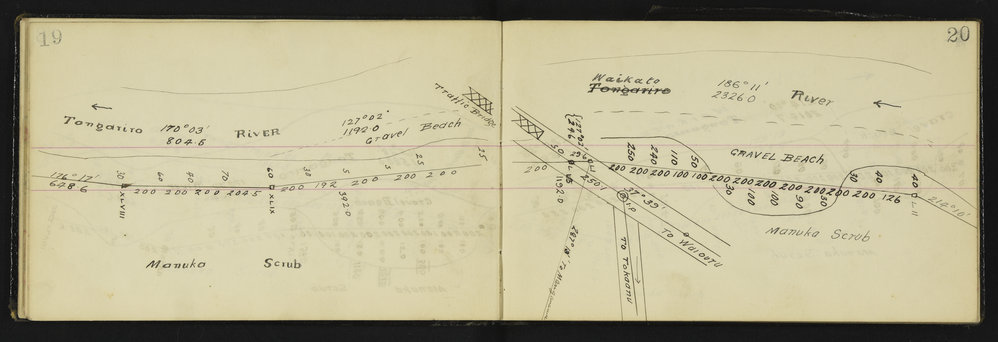 19
Tongariro
170°03'
804.5
RIVER
127°02'
1192.0
Gravel Beach
Traffic Bridge
176°17'
648.6
30 60 40 70 60 30 5 5 25 25
XLVIII
200 200 200 204.5
XLIX
200 192 200 200 200 200
392.0
Manuka Scrub
20
Waikato
Tongariro
186°11'
2326.0
River
127°02'
GRAVEL BEACH
200
50
250 240 110 50
200 200 200 100 100 200 200 200 200 200 200 200 200 126
1192.0
37°39'
30 100 100 90 30
30 40 40
214°10'
Manuka Scrub
To Waiouru
TO TOKAANU